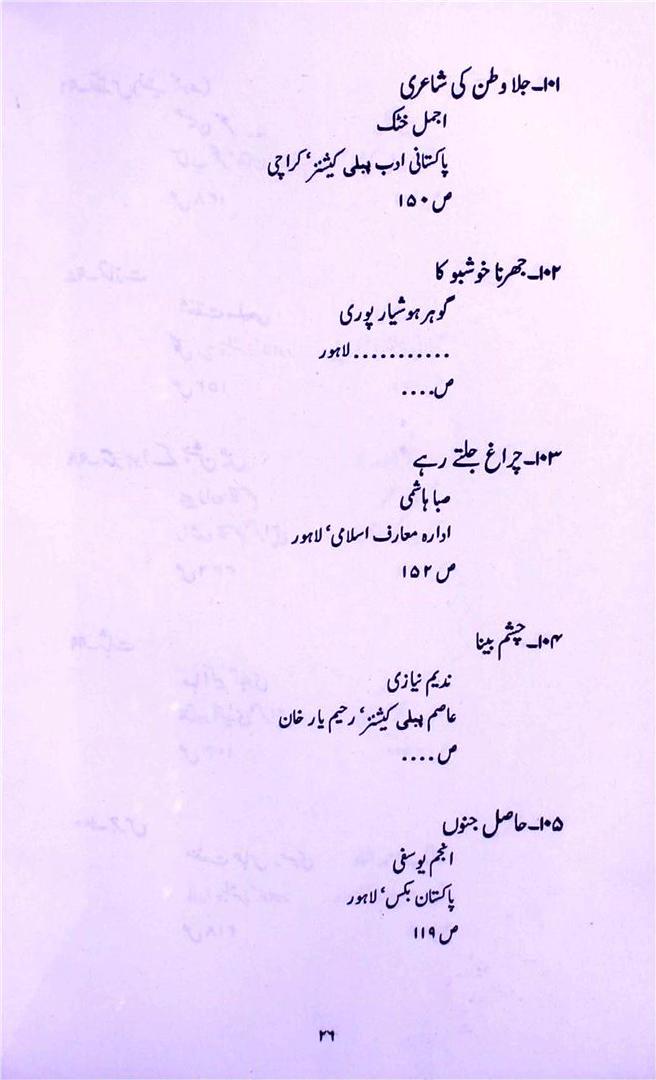 ۱۰۱۔جلا وطن کی شاعری
اجمل خٹک
پاکستانی ادب پبلی کیشنز، کراچی
ص ۱۵۰
۱۰۲۔جھرنا خوشبو کا
گوہر ہوشیار پوری
........... لاہور
ص....
۱۰۳۔چراغ جلتے رہے
صبا ہاشمی
ادارہ معارف اسلامی، لاہور
ص ۱۵۲
۱۰۴۔چشم بینا
ندیم نیازی
عاصم پبلی کیشنز، رحیم یار خان
ص ....
۱۰۵۔حاصل جنوں
انجم یوسفی
پاکستان بکس، لاہور
ص ۱۱۹
۲۶